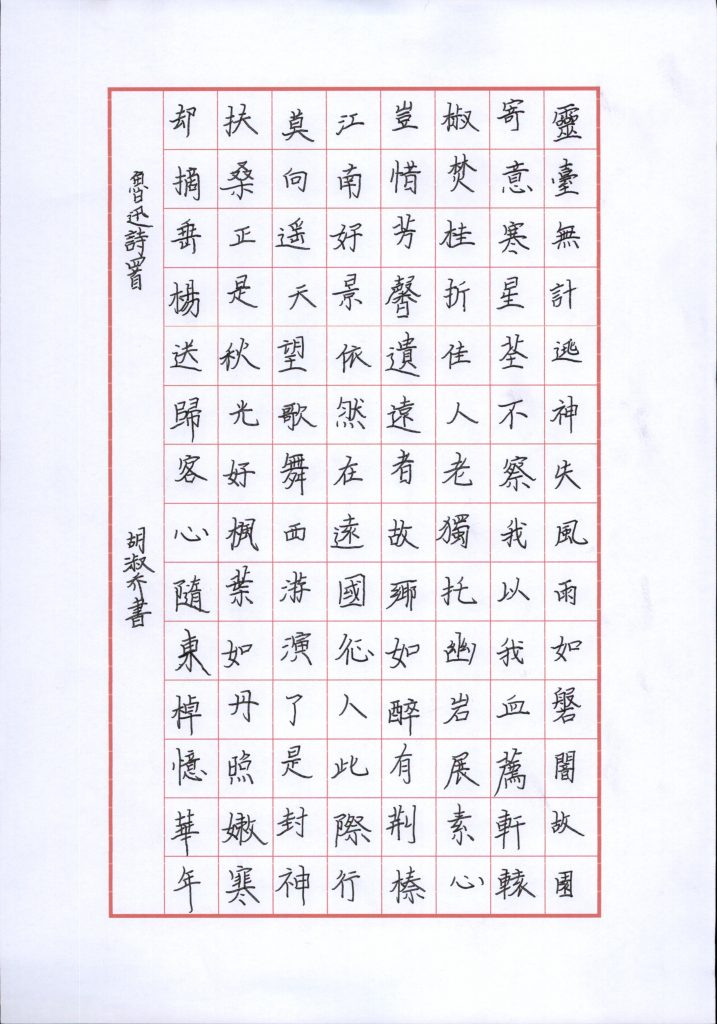 靈臺無計逃神失風雨如磐闇故園
寄意寒星荃不察我以我血薦軒轅
椒焚桂折佳人老獨托幽岩展素心
豈惜芳馨遺遠者故鄉如醉有荆榛
江南好景依然在遠國征人此際行
莫向遥天望歌舞西游演了是封神
扶桑正是秋光好楓葉如丹照嫩寒
却摘垂楊送歸客心隨東棹憶華年
魯迅詩四首 胡淑書